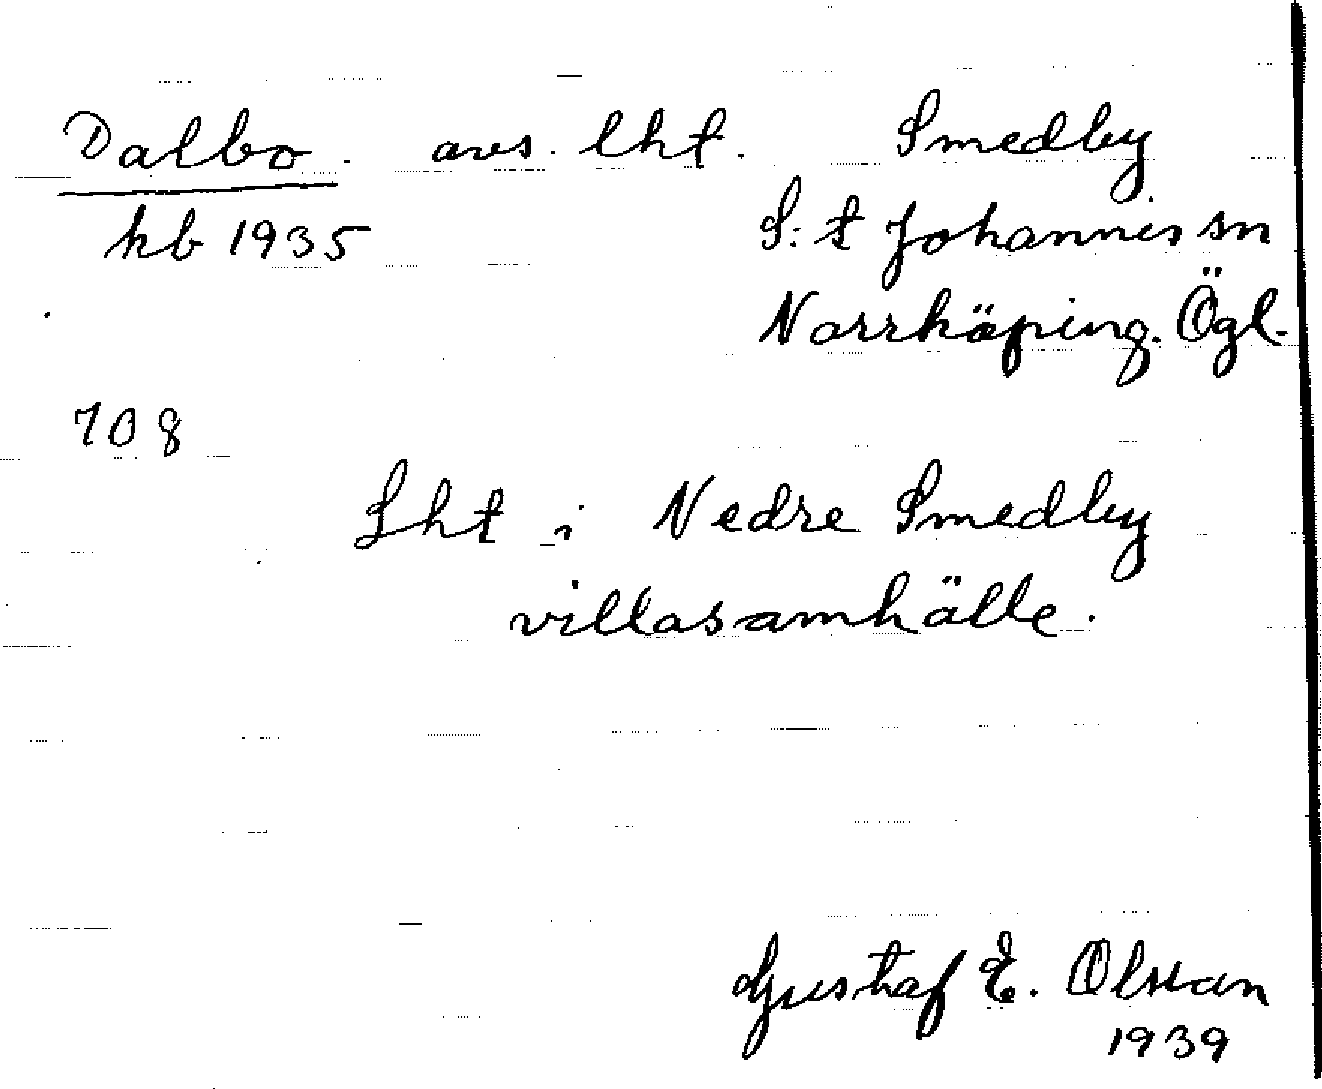 Dalbo. avs. lht. Smedby
kb 1935 S:t Johannes sn
Norrköping. Ögl.
708
Lht i Nedre Smedby
villasamhälle.
Gustaf E. Olsson
1939